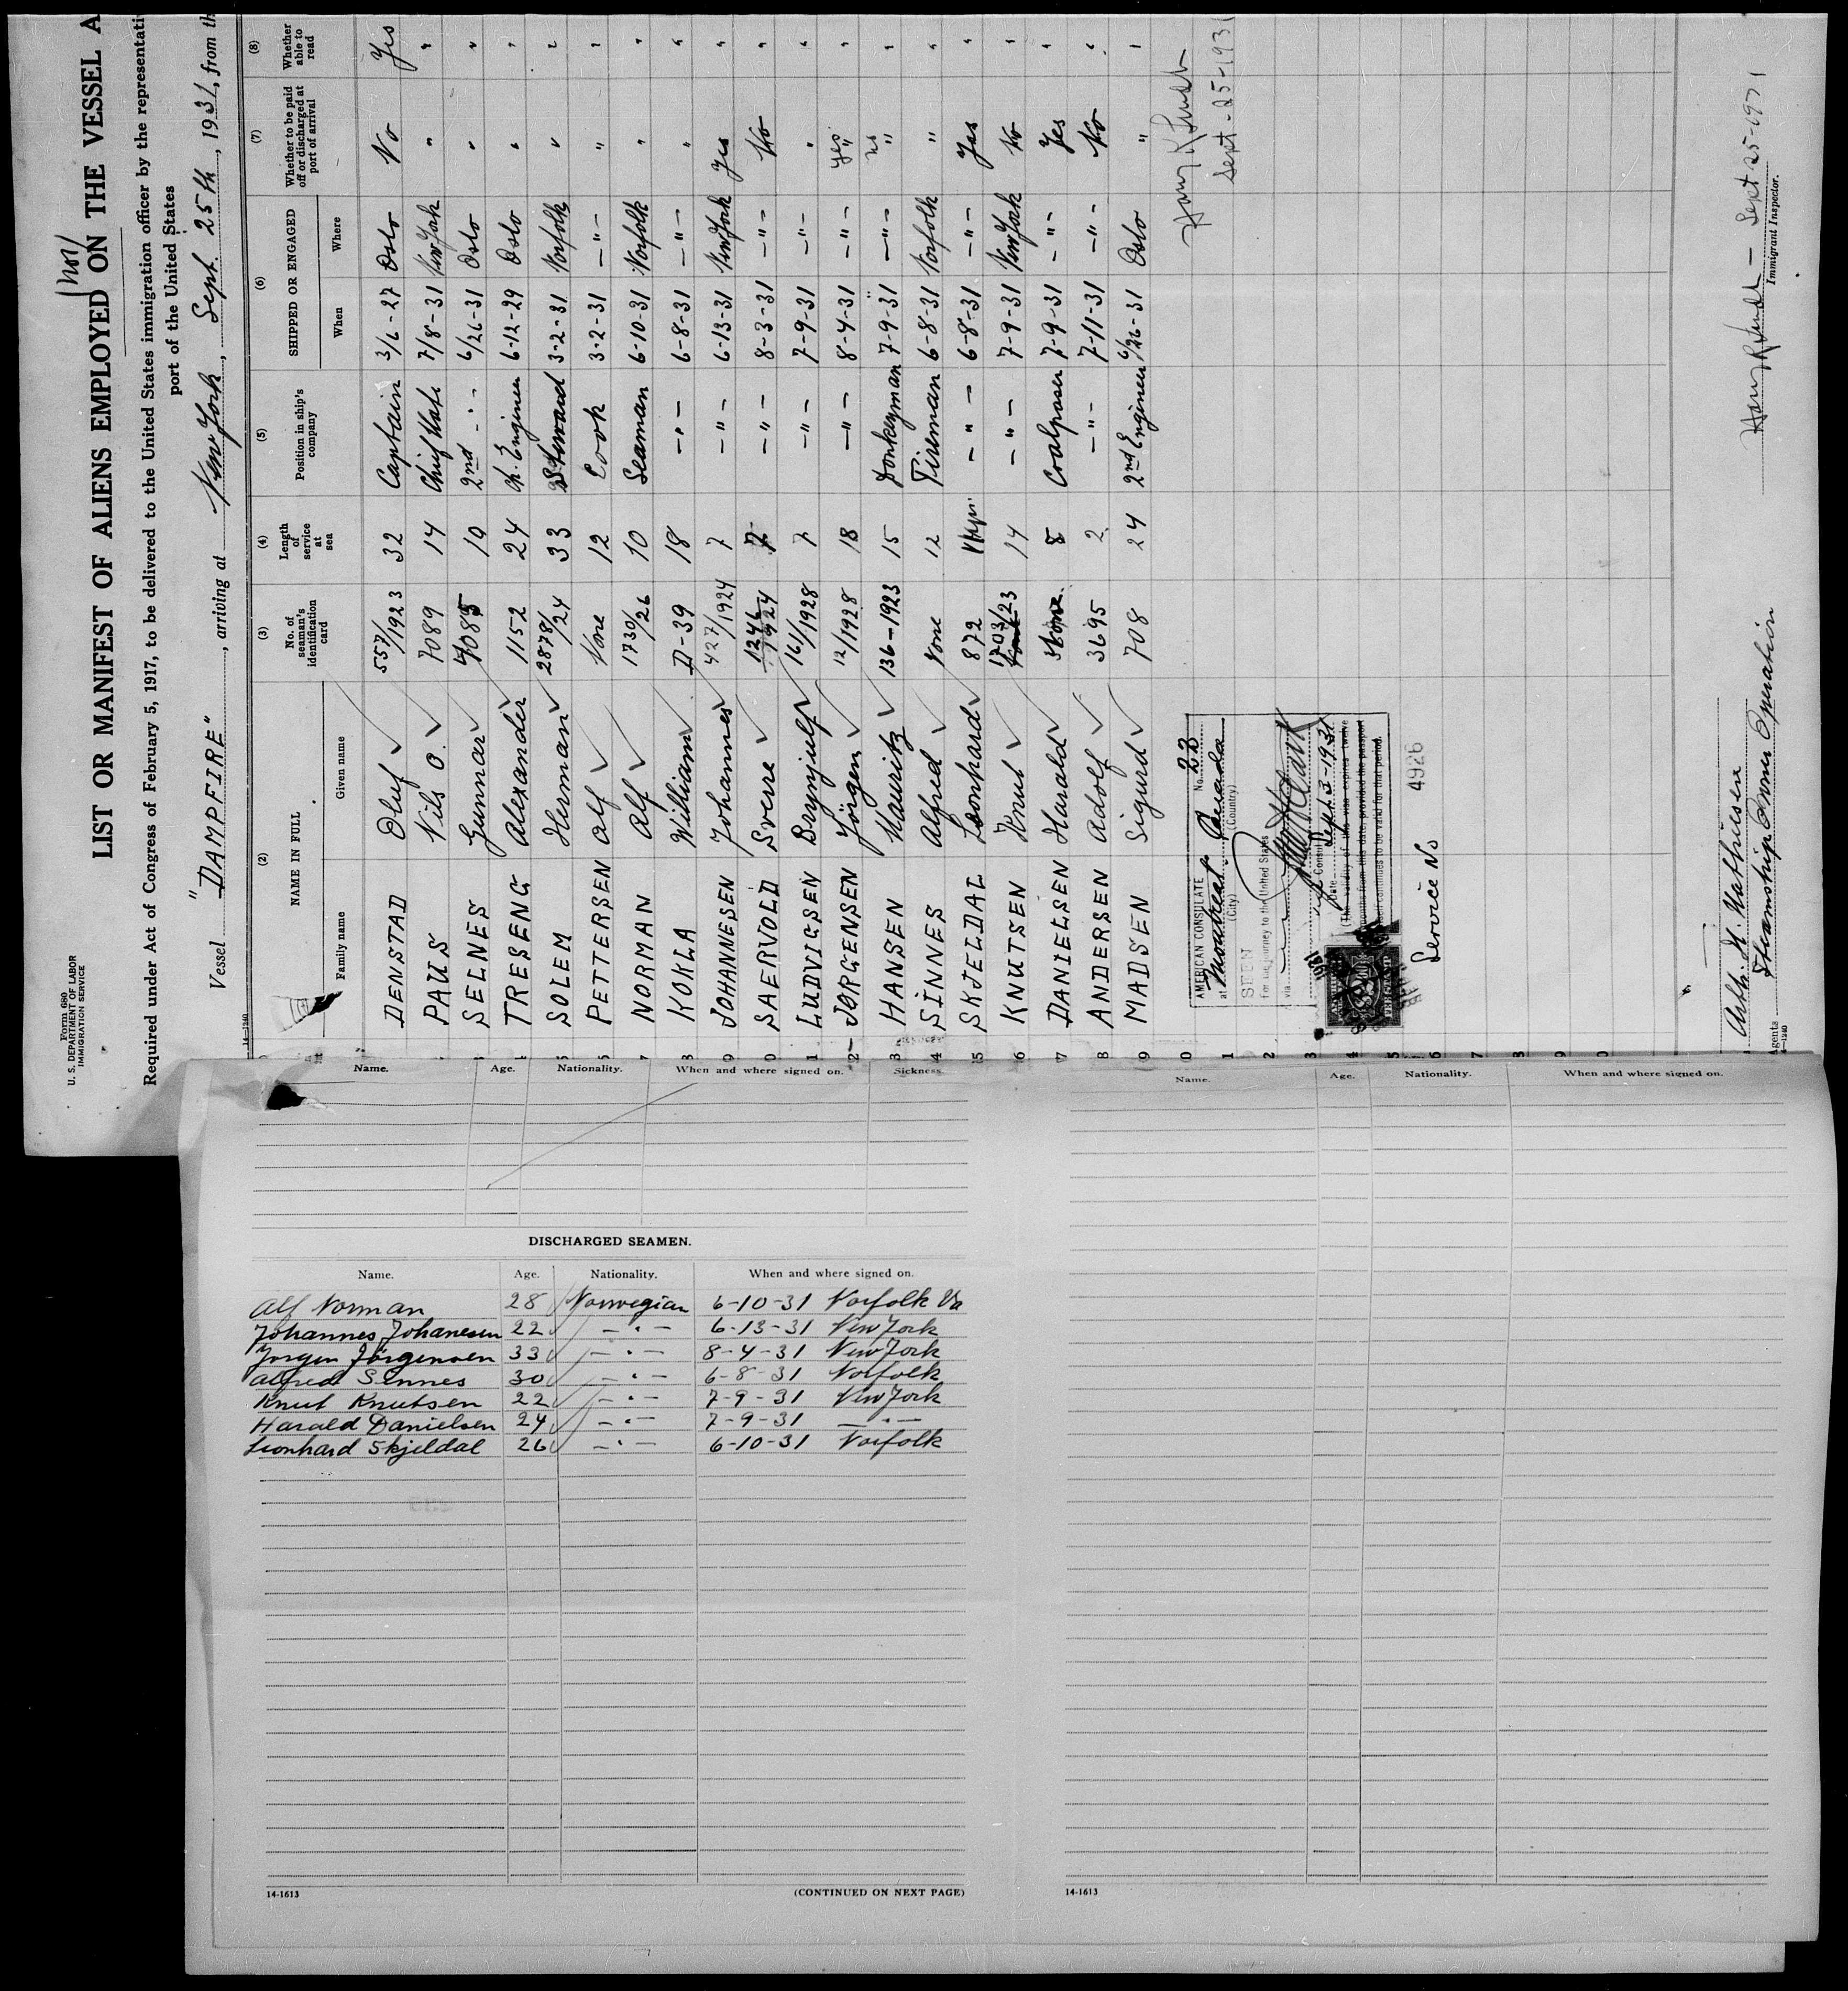 Form 680
U. S. DEPARTMENT OF LABOR
IMMIGRATION SERVICE
Nor/
LIST OR MANIFEST OF ALIENS EMPLOYED ON THE VESSEL A
Required under Act of Congress of February 5, 1917, to be delivered to the United States immigration officer by the representati
port of the United States
Vessel "DAMPFIRE", arriving at New York, Sept. 25th, 1931, from th
14-1240
(2) (3) (4) (5) (6) (7) (8)
NAME IN FULL No. of seaman's identification card Length of service at sea Position in ship's company SHIPPED OR ENGAGED Whether to be paid off or discharged at port of arrival Whether able to read
Family name Given name When Where
DENSTAD Oluf ✓ 557/1923 32 Captain 3/6-27 Oslo No Yes
PAUS Nils O. ✓ 7089 14 Chief Mate 7/8-31 New York " "
SELNES Gunnar ✓ 4085 10 2nd - " - 6/26-31 Oslo " "
TRESENG Alexander 1152 24 Ch. Engineer 6-12-29 Oslo " "
SOLEM Herman ✓ 2878/24 33 Steward 3-2-31 Norfolk " "
PETTERSEN Alf ✓ None 12 Cook 3-2-31 - " - " "
7 NORMAN Alf ✓ 1730/26 10 Seaman 6-10-31 Norfolk " "
8 KOKLA William D-39 18 - " - 6-8-31 - " - " "
9 JOHANNESEN Johannes 427/1924 7 - " - 6-13-31 New York Yes "
0 SAERVOLD Sverre ✓ 1246/1924 7 - " - 8-3-31 - " - No "
1 LUDVIGSEN Brynjulf 16/1928 7 - " - 7-9-31 - " - " "
2 JØRGENSEN Jörgen ✓ 12/1928 18 - " - 8-4-31 - " - yes "
3 HANSEN Mauritz ✓ 136-1923 15 Donkeyman 7-9-31 - " - no "
4 SINNES Alfred ✓ None 12 Fireman 6-8-31 Norfolk " "
5 SKJELDAL Leonhard ✓ 872 - " - 6-8-31 - " - Yes "
6 KNUTSEN Knut ✓ 1703/23 14 - " - 7-9-31 New York No "
7 DANIELSEN Harald ✓ None 8 Coalpasser 7-9-31 - " - Yes "
8 ANDERSEN Adolf ✓ 3695 2 - " - 7-11-31 - " - No "
9 MADSEN Sigurd ✓ 708 24 2nd Engineer 6/26-31 Oslo " "
Sept-25-1931
AMERICAN CONSULATE No. 23
at Montreal Canada
(City) (Country)
SEEN
For the journey to the United States
via
Consul
Date Sept-3-1931
(The validity of this visa expires twelve
months from this date, provided the passport
itself continues to be valid for that period.
Service No
4926
Arth. H. Mathiesen
Agents Steamship Owner Operation
Sept 25-1931
Immigrant Inspector.
Name. Age. Nationality. When and where signed on. Sickness.
DISCHARGED SEAMEN.
Name. Age. Nationality. When and where signed on.
Alf Norman 28 Norwegian 6-10-31 Norfolk Va
Johannes Johanesen 22 - " - 6-13-31 New York
Jorgen Jörgensen 33 - " - 8-4-31 New York
Alfred Sinnes 30 - " - 6-8-31 Norfolk
Knut Knutsen 22 - " - 7-9-31 New York
Harald Danielsen 24 - " - 7-9-31 - " -
Leonhard Skjeldal 26 - " - 6-10-31 Norfolk
14-1613 (CONTINUED ON NEXT PAGE)
Name. Age. Nationality. When and where signed on.
14-1613